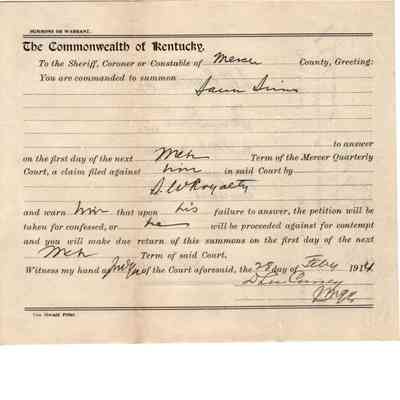 SUMMONS OR WARRANT.
The Commonwealth of Kentucky,
To the Sheriff, Coroner or Constable of Mercer County, Greeting:
You are commanded to summon
Sims
to answer
on the first day of the next Mch Term of the Mercer Quarterly
Court, a claim filed against him in said Court by
D. W Royalty
and warn him that upon his failure to answer, the petition will be
taken for confessed, or he will be proceeded against for contempt
and you will make due return of this summons on the first day of the next
Mch Term of said Court,
Witness my hand as Judge of the Court aforesaid, the 28 day of Feby 1914
The Herald Print.